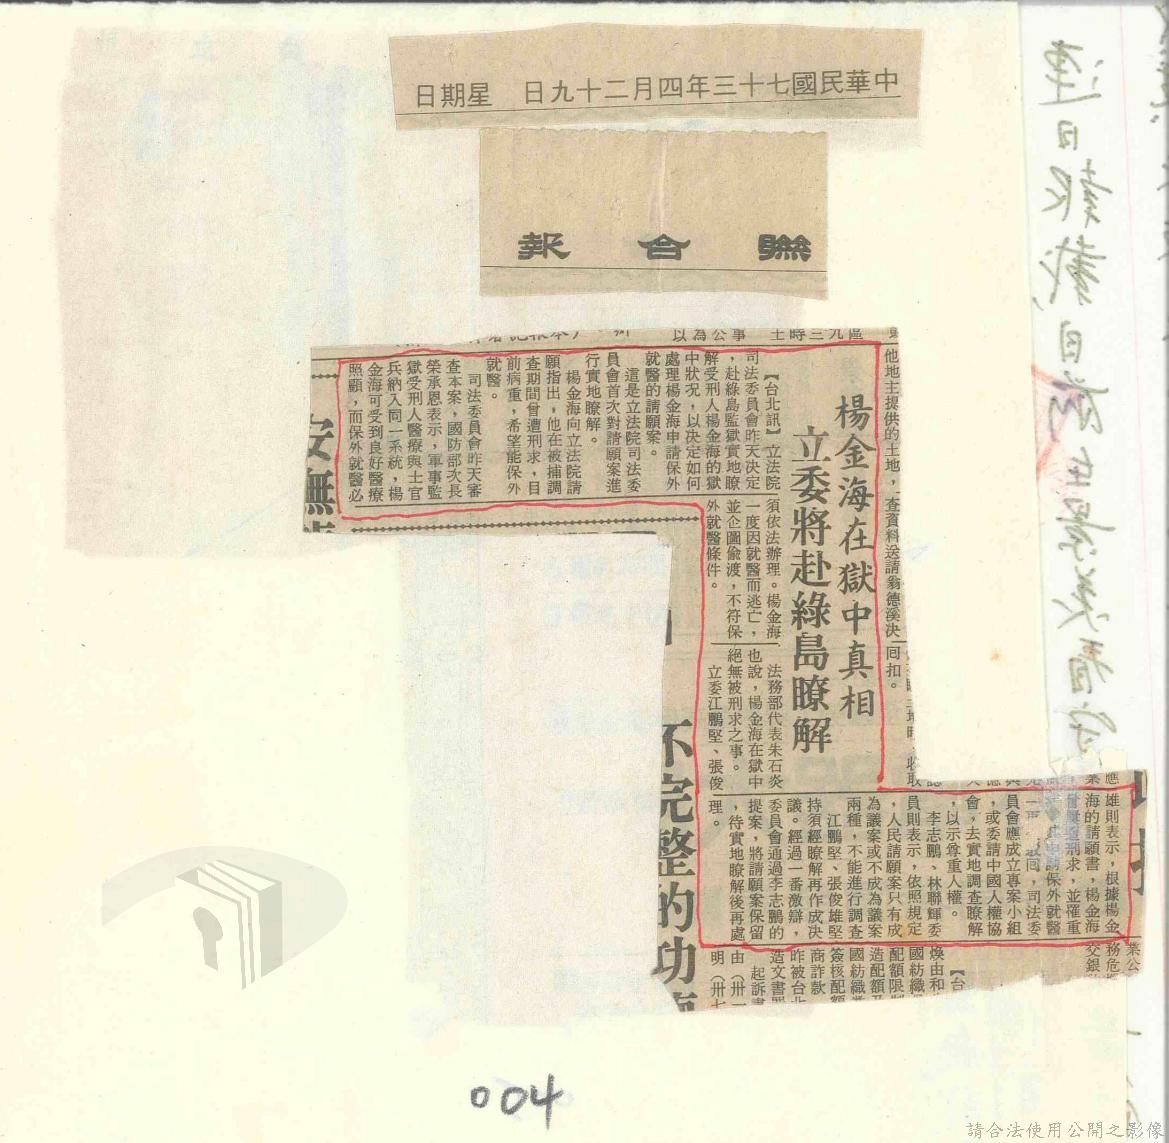 中華民國七十三年四月二十九日　星期日
聯合報
楊金海在獄中真相
立委將赴綠島瞭解
【台北訊】立法院
司法委員會昨天決定
，赴綠島監獄實地瞭
解受刑人楊金海的獄
中狀況，以決定如何
處理楊金海申請保外
就醫的請願案。
這是立法院司法委
員會首次對請願案進
行實地瞭解。
楊金海向立法院請
願指出，他在被捕調
查期間曾遭刑求，目
前病重，希望能保外
就醫。
司法委員會昨天審
查本案，國防部次長
榮承恩表示，軍事監
獄受刑人醫療與士官
兵納入同一系統，楊
金海可受到良好醫療
照顧，而保外就醫必
須依法辦理。楊金海
一度因就醫而逃亡，
並企圖偷渡，不符保
外就醫條件。
法務部代表朱石炎
也說，楊金海在獄中
絕無被刑求之事。
立委江鵬堅、張俊
雄則表示，根據楊金
海的請願書，楊金海
刑求，並罹重
請保外就醫
同，司法委
員會應成立專案小組
，或委請中國人權協
會，去實地調查瞭解
，以示尊重人權。
李志鵬、林聯輝委
員則表示，依照規定
，人民請願案只有成
為議案或不成為議案
兩種，不能進行調查
江鵬堅、張俊雄堅
持須經瞭解再作成決
議。經過一番激辯，
委員會通過李志鵬的
提案，將請願案保留
，待實地瞭解後再處
理。
他地主提供的土地，
查資料送請翁德溪決
回扣。
安無
不完整的功
004
請合法使用公開之影像